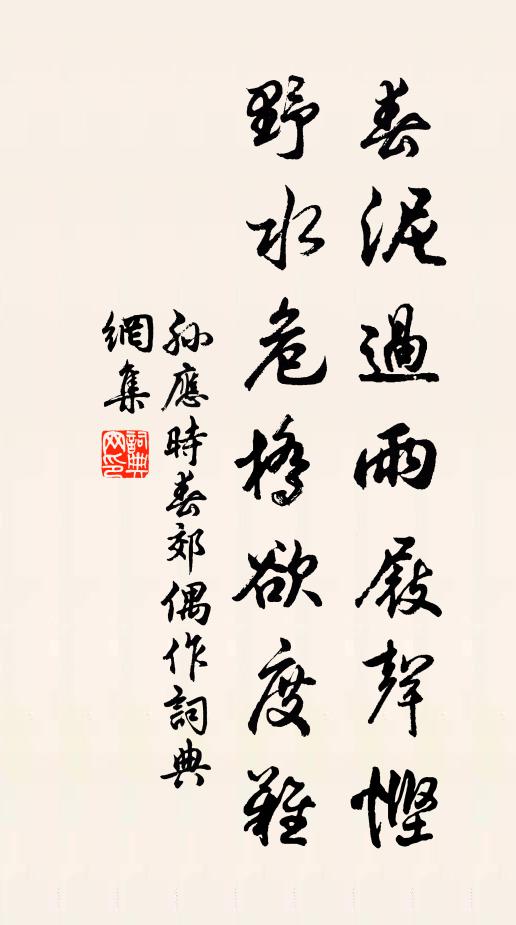 春泥過雨屐聲慳
野水危橋欲度難
孫應時春郊偶作詞典
網集
詞典
网印